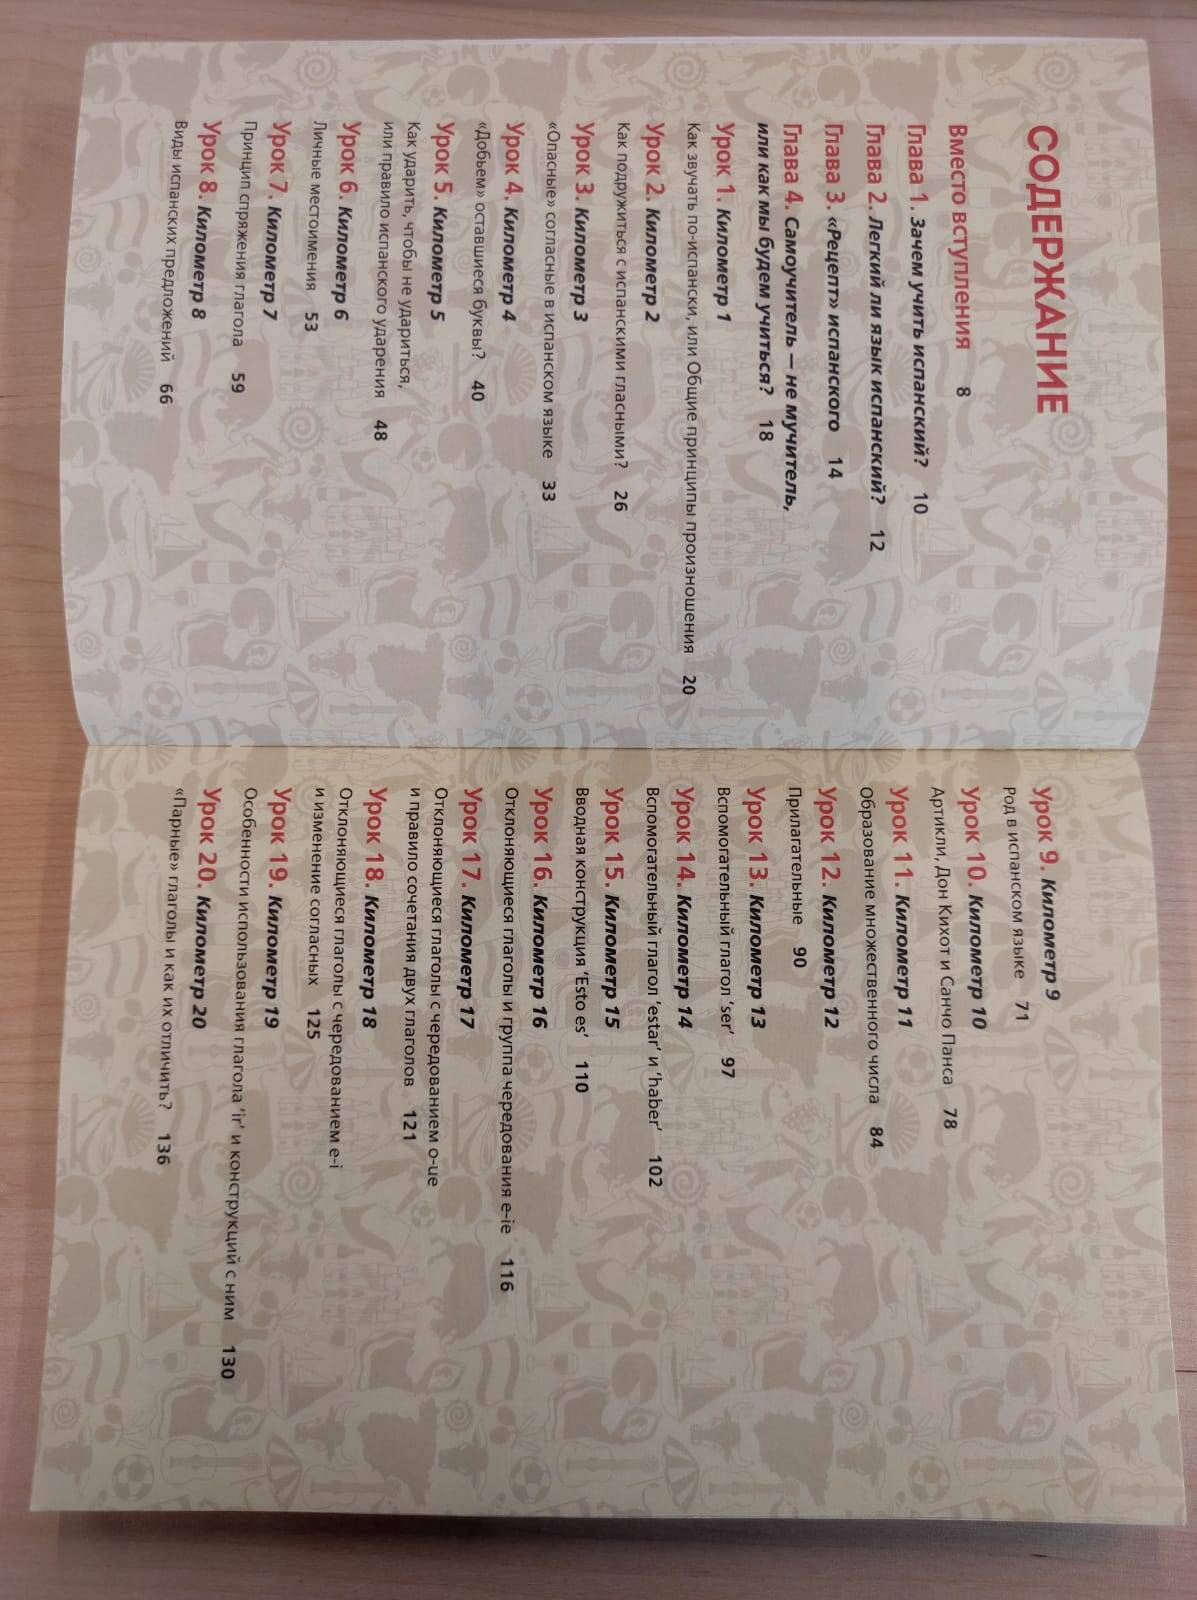 СОДЕРЖАНИЕ
Вместо вступления 8
Глава 1. Зачем учить испанский? 10
Глава 2. Легкий ли язык испанский? 12
Глава 3. «Рецепт» испанского 14
Глава 4. Самоучитель — не мучитель,
или как мы будем учиться? 18
Урок 1. Километр 1
Как звучать по-испански, или Общие принципы произношения 20
Урок 2. Километр 2
Как подружиться с испанскими гласными? 26
Урок 3. Километр 3
«Опасные» согласные в испанском языке 33
Урок 4. Километр 4
«Добьем» оставшиеся буквы? 40
Урок 5. Километр 5
Как ударить, чтобы не удариться,
или правило испанского ударения 48
Урок 6. Километр 6
Личные местоимения 53
Урок 7. Километр 7
Принцип спряжения глагола 59
Урок 8. Километр 8
Виды испанских предложений 66
Урок 9. Километр 9
Род в испанском языке 71
Урок 10. Километр 10
Артикли, Дон Кихот и Санчо Панса 78
Урок 11. Километр 11
Образование множественного числа 84
Урок 12. Километр 12
Прилагательные 90
Урок 13. Километр 13
Вспомогательный глагол ‘ser’ 97
Урок 14. Километр 14
Вспомогательный глагол ‘estar’ и ‘haber’ 102
Урок 15. Километр 15
Вводная конструкция ‘Esto es’ 110
Урок 16. Километр 16
Отклоняющиеся глаголы и группа чередования e-ie 116
Урок 17. Километр 17
Отклоняющиеся глаголы с чередованием o-ue
и правило сочетания двух глаголов 121
Урок 18. Километр 18
Отклоняющиеся глаголы с чередованием e-i
и изменение согласных 125
Урок 19. Километр 19
Особенности использования глагола ‘ir’ и конструкций с ним 130
Урок 20. Километр 20
«Парные» глаголы и как их отличить? 136